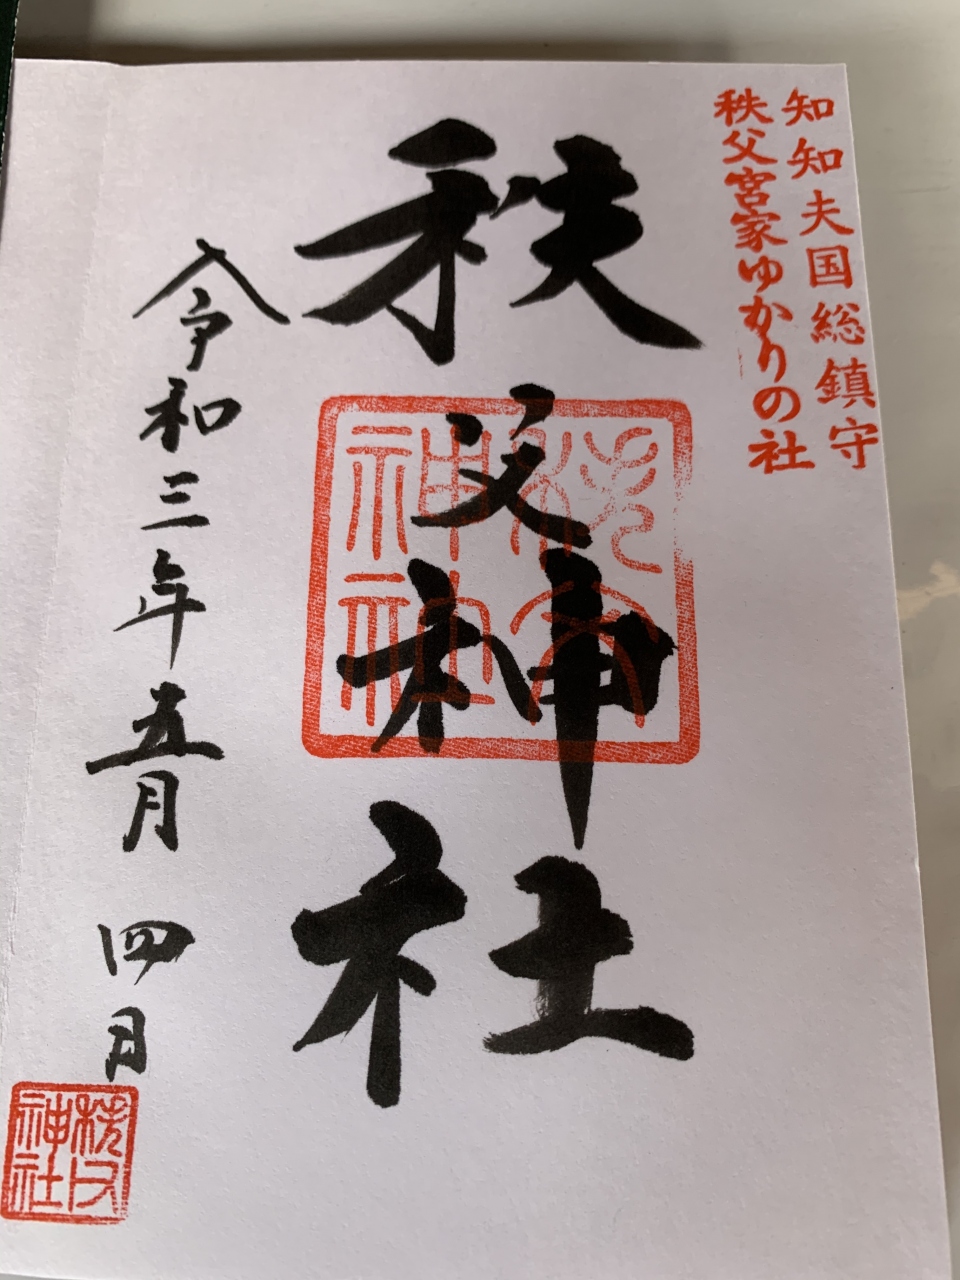 知知夫国総鎮守
秩父宮家ゆかりの社
秩父神社
秩父神社
令和三年五月四日
秩父神社